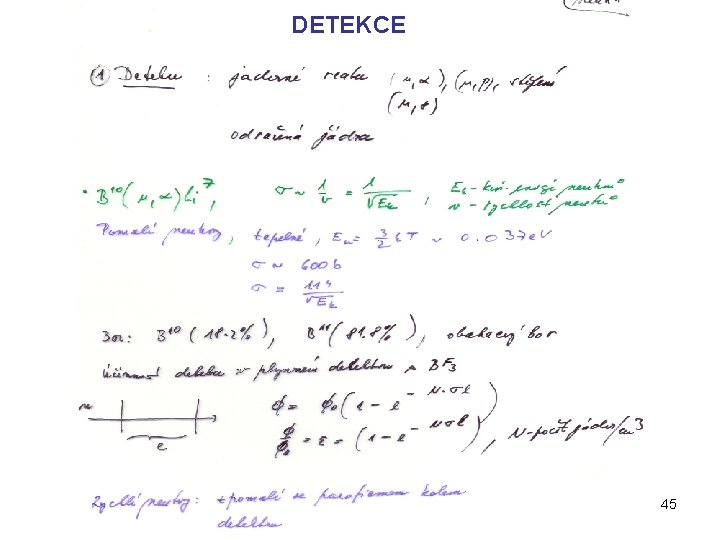 DETEKCE
① Detekce : jaderné reakce (n,α), (n,p), štěpení
(n,γ)
odražená jádra
• B¹⁰(n,α)Li⁷, σ ~ 1/v = 1/√Eₖ , Eₖ - kin. energie neutronů
v - rychlost neutronů
Pomalé neutrony, tepelné, Eₙ = 3/2 kT ~ 0.037 eV
σ ~ 600 b
σ = 119/√Eₖ
Bor: B¹⁰ (18.2%), B¹¹ (81.8%), obohacený bor
účinnost detekce v plynném detektoru s BF₃
n
l
ϕ = ϕ₀ (1 - e^(-N·σl))
ϕ/ϕ₀ = ε = (1 - e^(-Nσl)), N - počet jader/cm³
Rychlé neutrony: zpomalí se parafinem kolem
detektoru
45